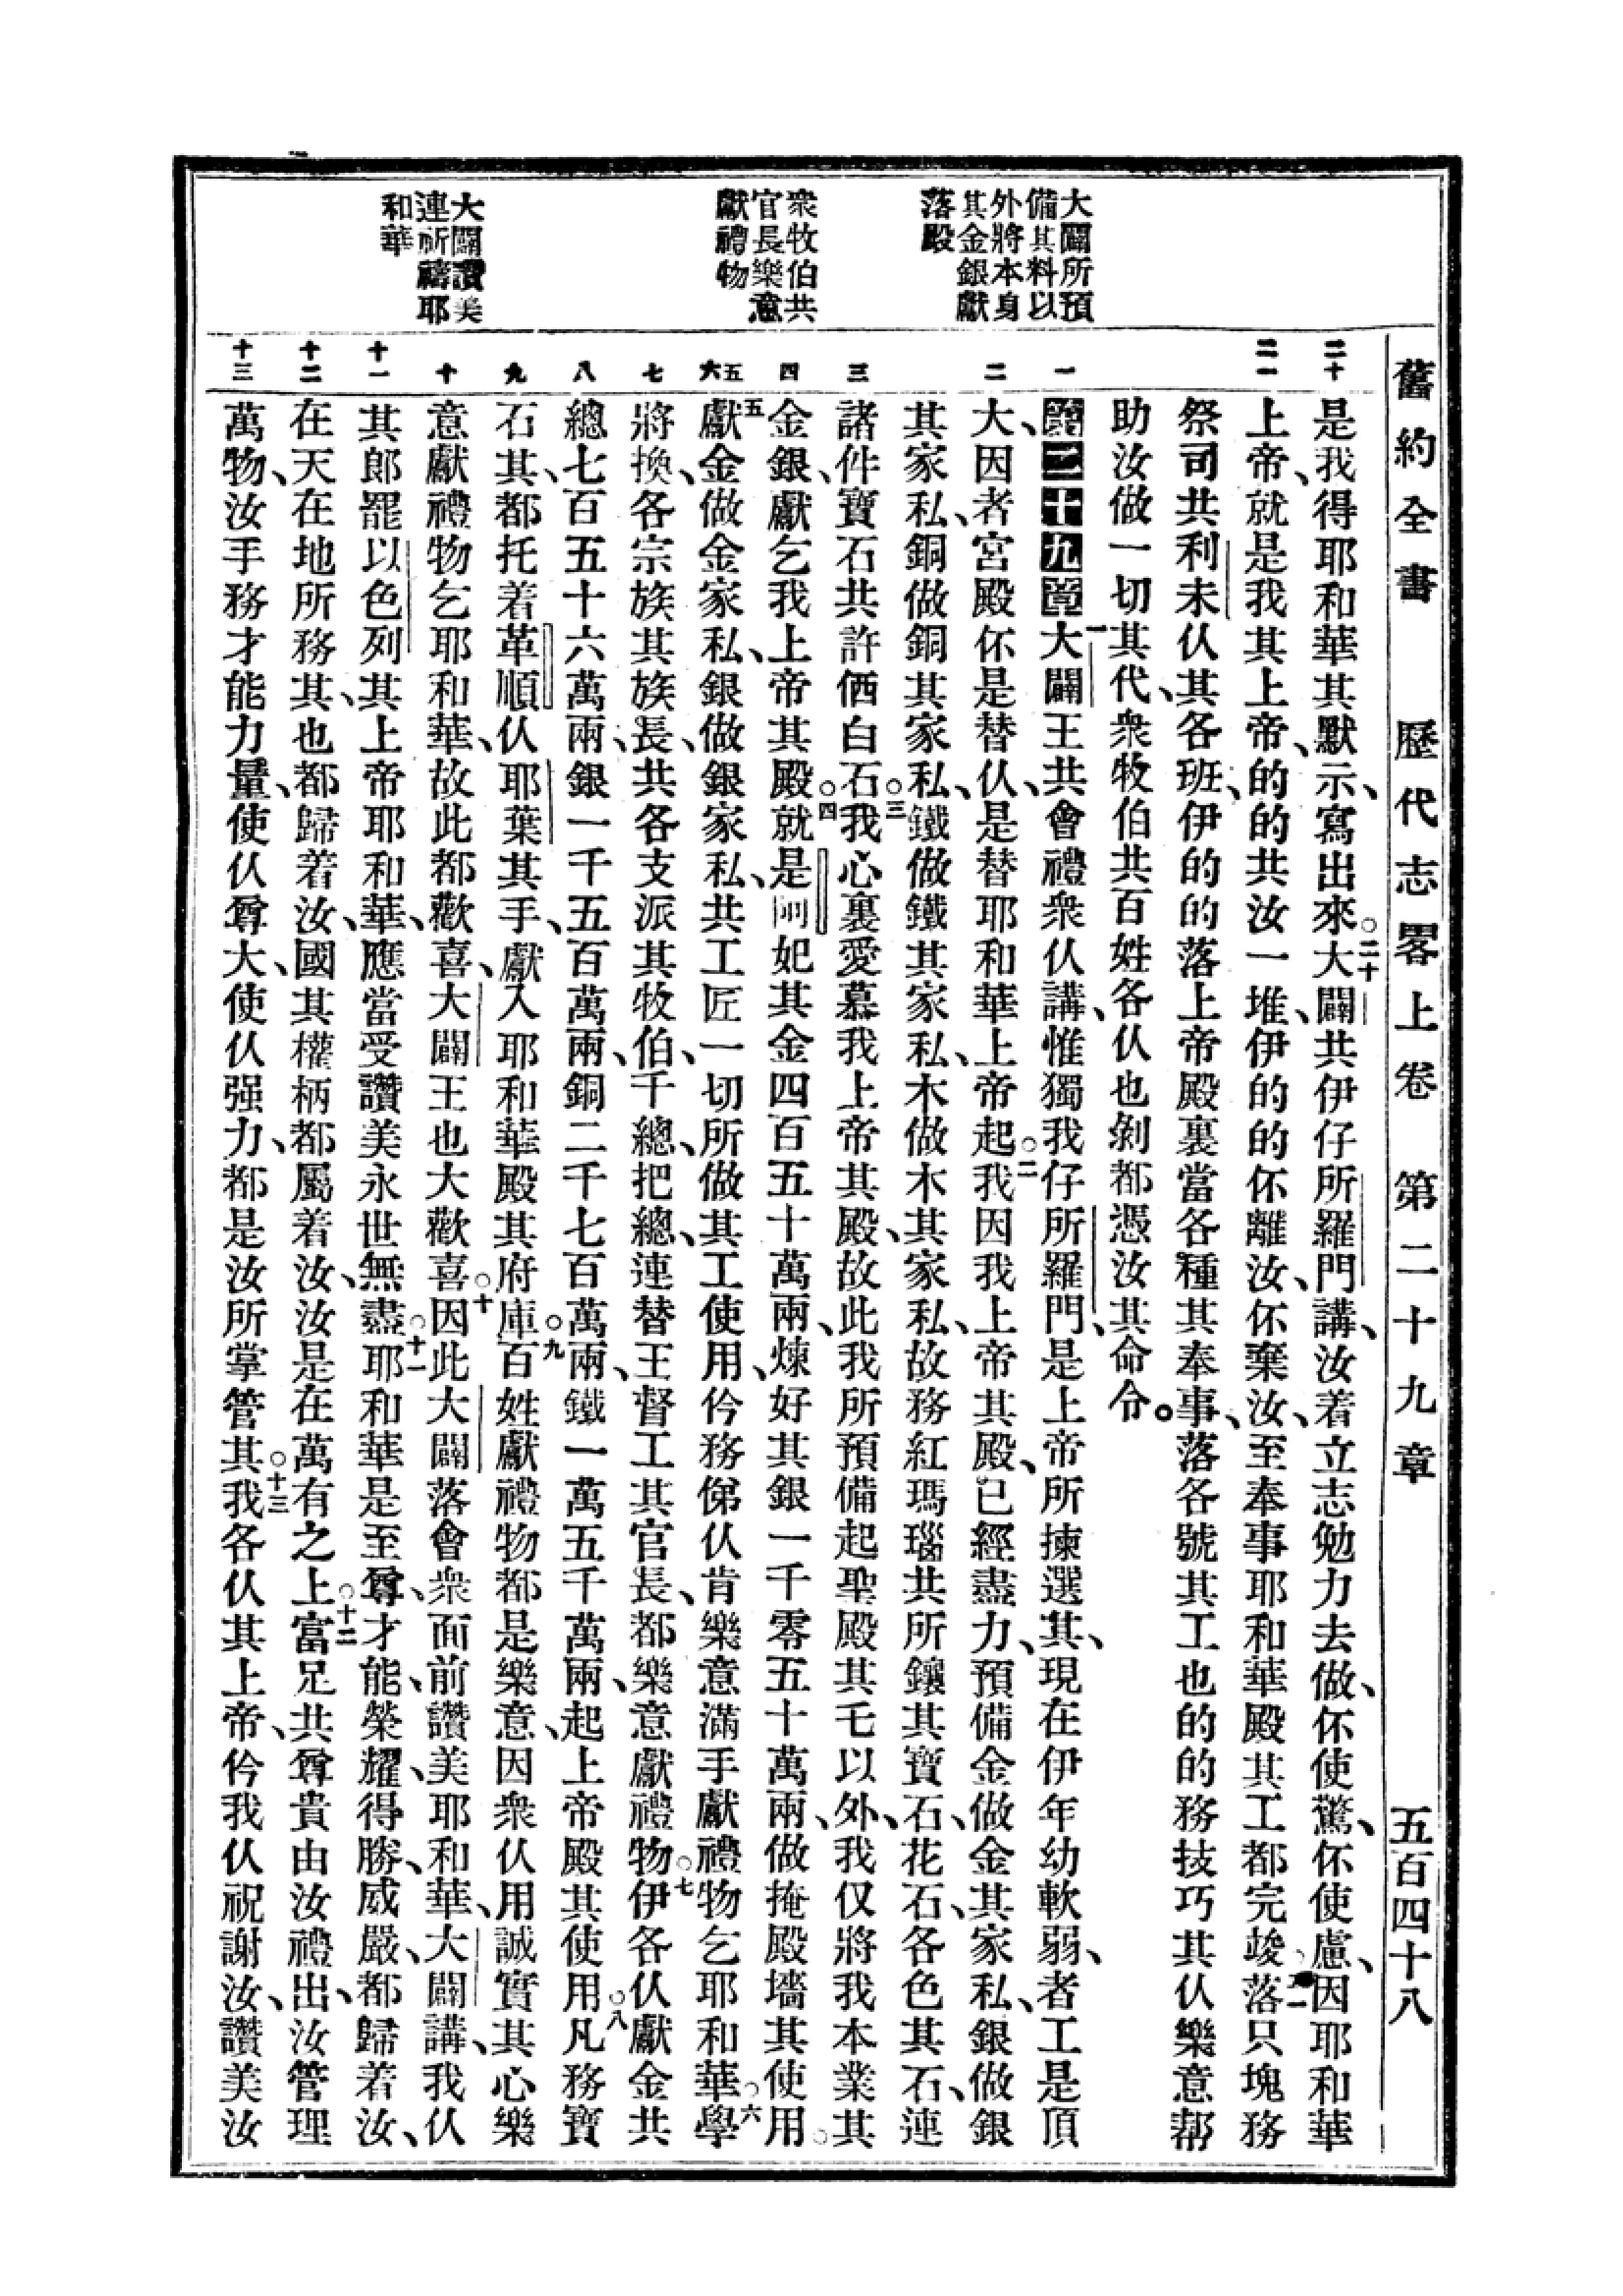 舊約全書 歷代志畧上卷 第二十九章 五百四十八
大闢所預
備其料以
外將本身
其金銀獻
落殿
衆牧伯共
官長樂意
獻禮物
大闢讚美
連祈禱耶
和華
二十 二一 一 二 三 四 五 六 七 八 九 十 十一 十二 十三
是我得耶和華其默示、寫出來。二十大闢共伊仔所羅門講、汝着立志勉力去做、伓使驚、伓使慮、因耶和華
上帝、就是我其上帝、的的共汝一堆、伊的的伓離汝、伓棄汝、至奉事耶和華殿其工都完竣。二一落只塊務
祭司共利未仈其各班、伊的的落上帝殿裏當各種其奉事、落各號其工也的的務技巧其仈樂意幇
助汝做一切其代、衆牧伯共百姓各仈也剝都憑汝其命令。
第二十九章一大闢王共會禮衆仈講、惟獨我仔所羅門、是上帝所揀選其、現在伊年幼軟弱、者工是頂
大、因者宮殿伓是替仈、是替耶和華上帝起。二我因我上帝其殿、已經盡力、預備金做金其家私、銀做銀
其家私、銅做銅其家私、鐵做鐵其家私、木做木其家私、故務紅瑪瑙共所鑲其寶石、花石、各色其石、連
諸件寶石共許価白石。三我心裏愛慕我上帝其殿、故此我所預備起聖殿其乇以外、我仅將我本業其
金銀、獻乞我上帝其殿。四就是阿妃其金四百五十萬兩、煉好其銀一千零五十萬兩、做掩殿墻其使用。
五獻金做金家私、銀做銀家私、共工匠一切所做其工使用、仱務俤仈肯樂意滿手獻禮物乞耶和華。六學
將換、各宗族其族長、共各支派其牧伯、千總、把總、連替王督工其官長、都樂意獻禮物。七伊各仈獻金共
總七百五十六萬兩、銀一千五百萬兩、銅二千七百萬兩、鐵一萬五千萬兩、起上帝殿其使用。八凡務寶
石其、都托着革順仈耶葉其手、獻入耶和華殿其府庫。九百姓獻禮物都是樂意、因衆仈用誠實其心樂
意獻禮物乞耶和華、故此都歡喜、大闢王也大歡喜。十因此大闢落會衆面前讚美耶和華、大闢講、我仈
其郎罷以色列其上帝耶和華、應當受讚美永世無盡。十一耶和華是至尊、才能、榮耀、得勝、威嚴、都歸着汝、
在天在地所務其、也都歸着汝、國其權柄都屬着汝、汝是在萬有之上。十二富足共尊貴由汝禮出、汝管理
萬物、汝手務才能力量、使仈尊大、使仈强力、都是汝所掌管其。十三我各仈其上帝、仱我仈祝謝汝、讚美汝